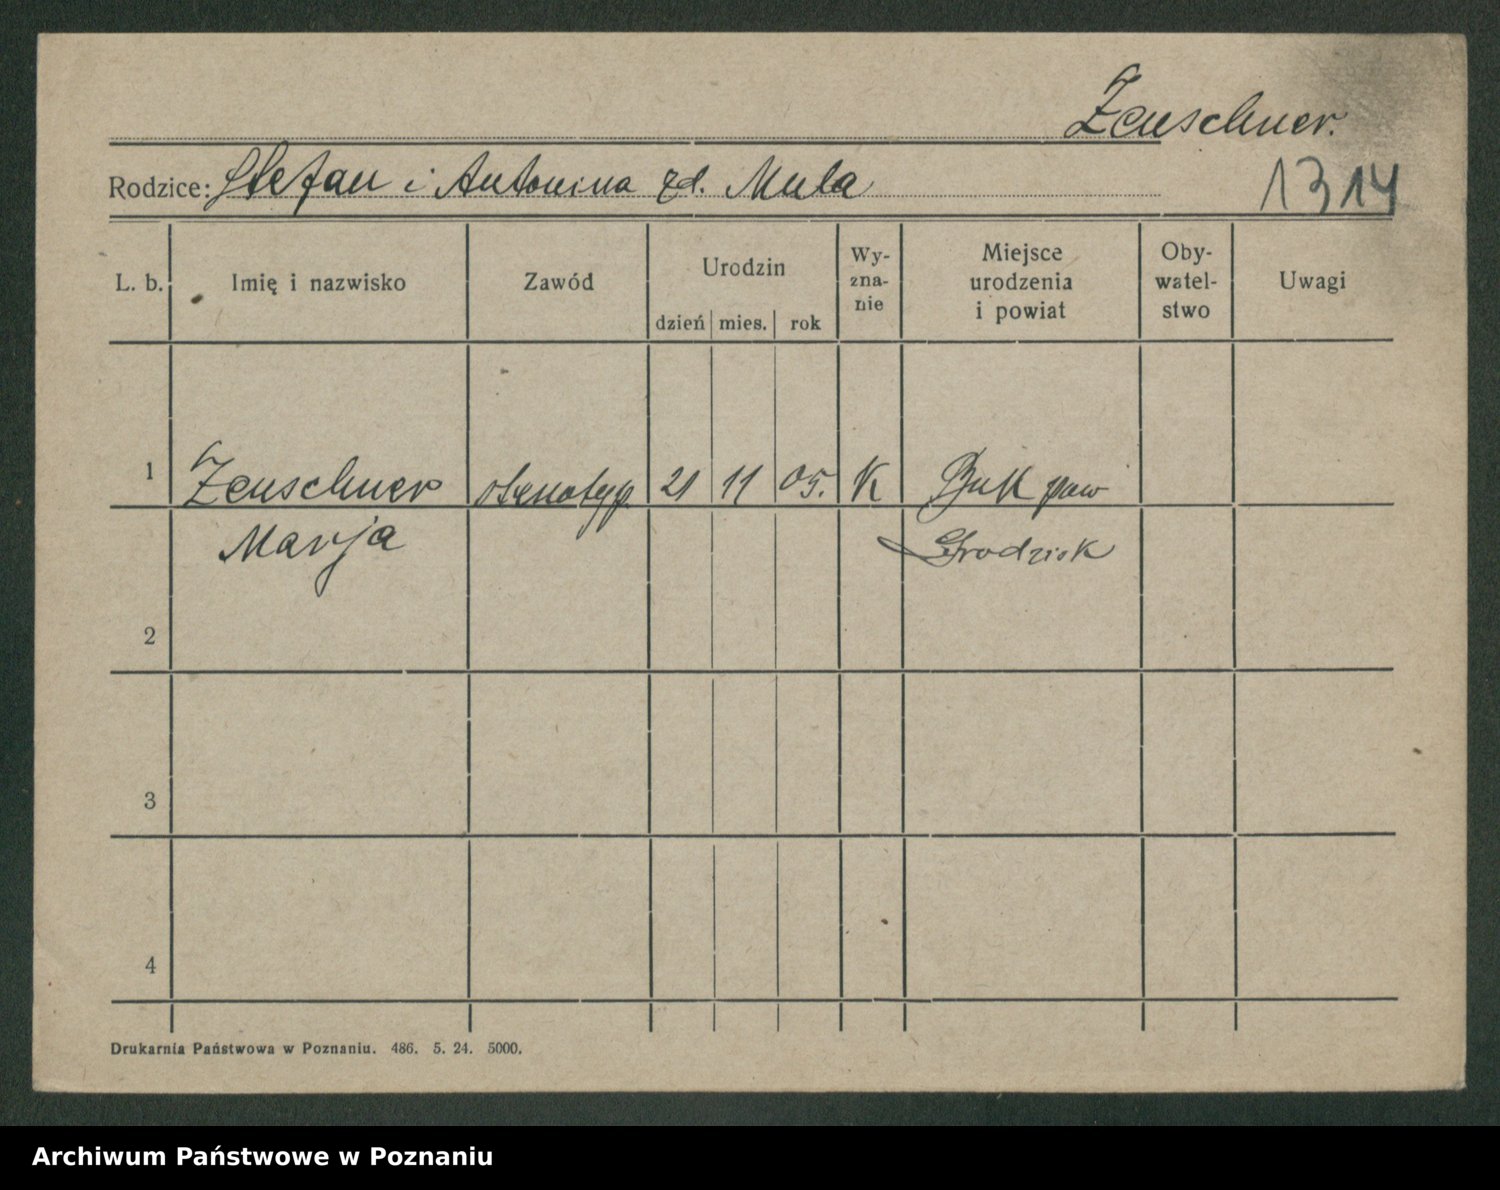 Zeuschner.
Rodzice: Stefan i Antonina zd. Mula
1314
L. b. Imię i nazwisko Zawód Urodzin dzień mies. rok Wy-zna-nie Miejsce urodzenia i powiat Oby-watel-stwo Uwagi
1 Zeuschner stenotyp. 21 11 05. K Buk pow
Marja Grodzisk
2
3
4
Drukarnia Państwowa w Poznaniu. 486. 5. 24. 5000.
Archiwum Państwowe w Poznaniu